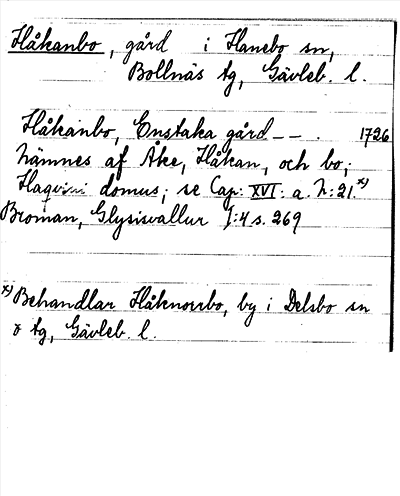 Håkanbo, gård i Hanebo sn,
Bollnäs tg, Gävleb. l.
Håkanbo, Enstaka gård - - . 1726
nämnes af Åke, Håkan, och bo;
Haqvini domus; se Cap: XVI: a. N: 21. x)
Broman, Glysisvallur I:4 s. 269
x) Behandlar Håknorbo, by i Delsbo sn
o tg, Gävleb. l.